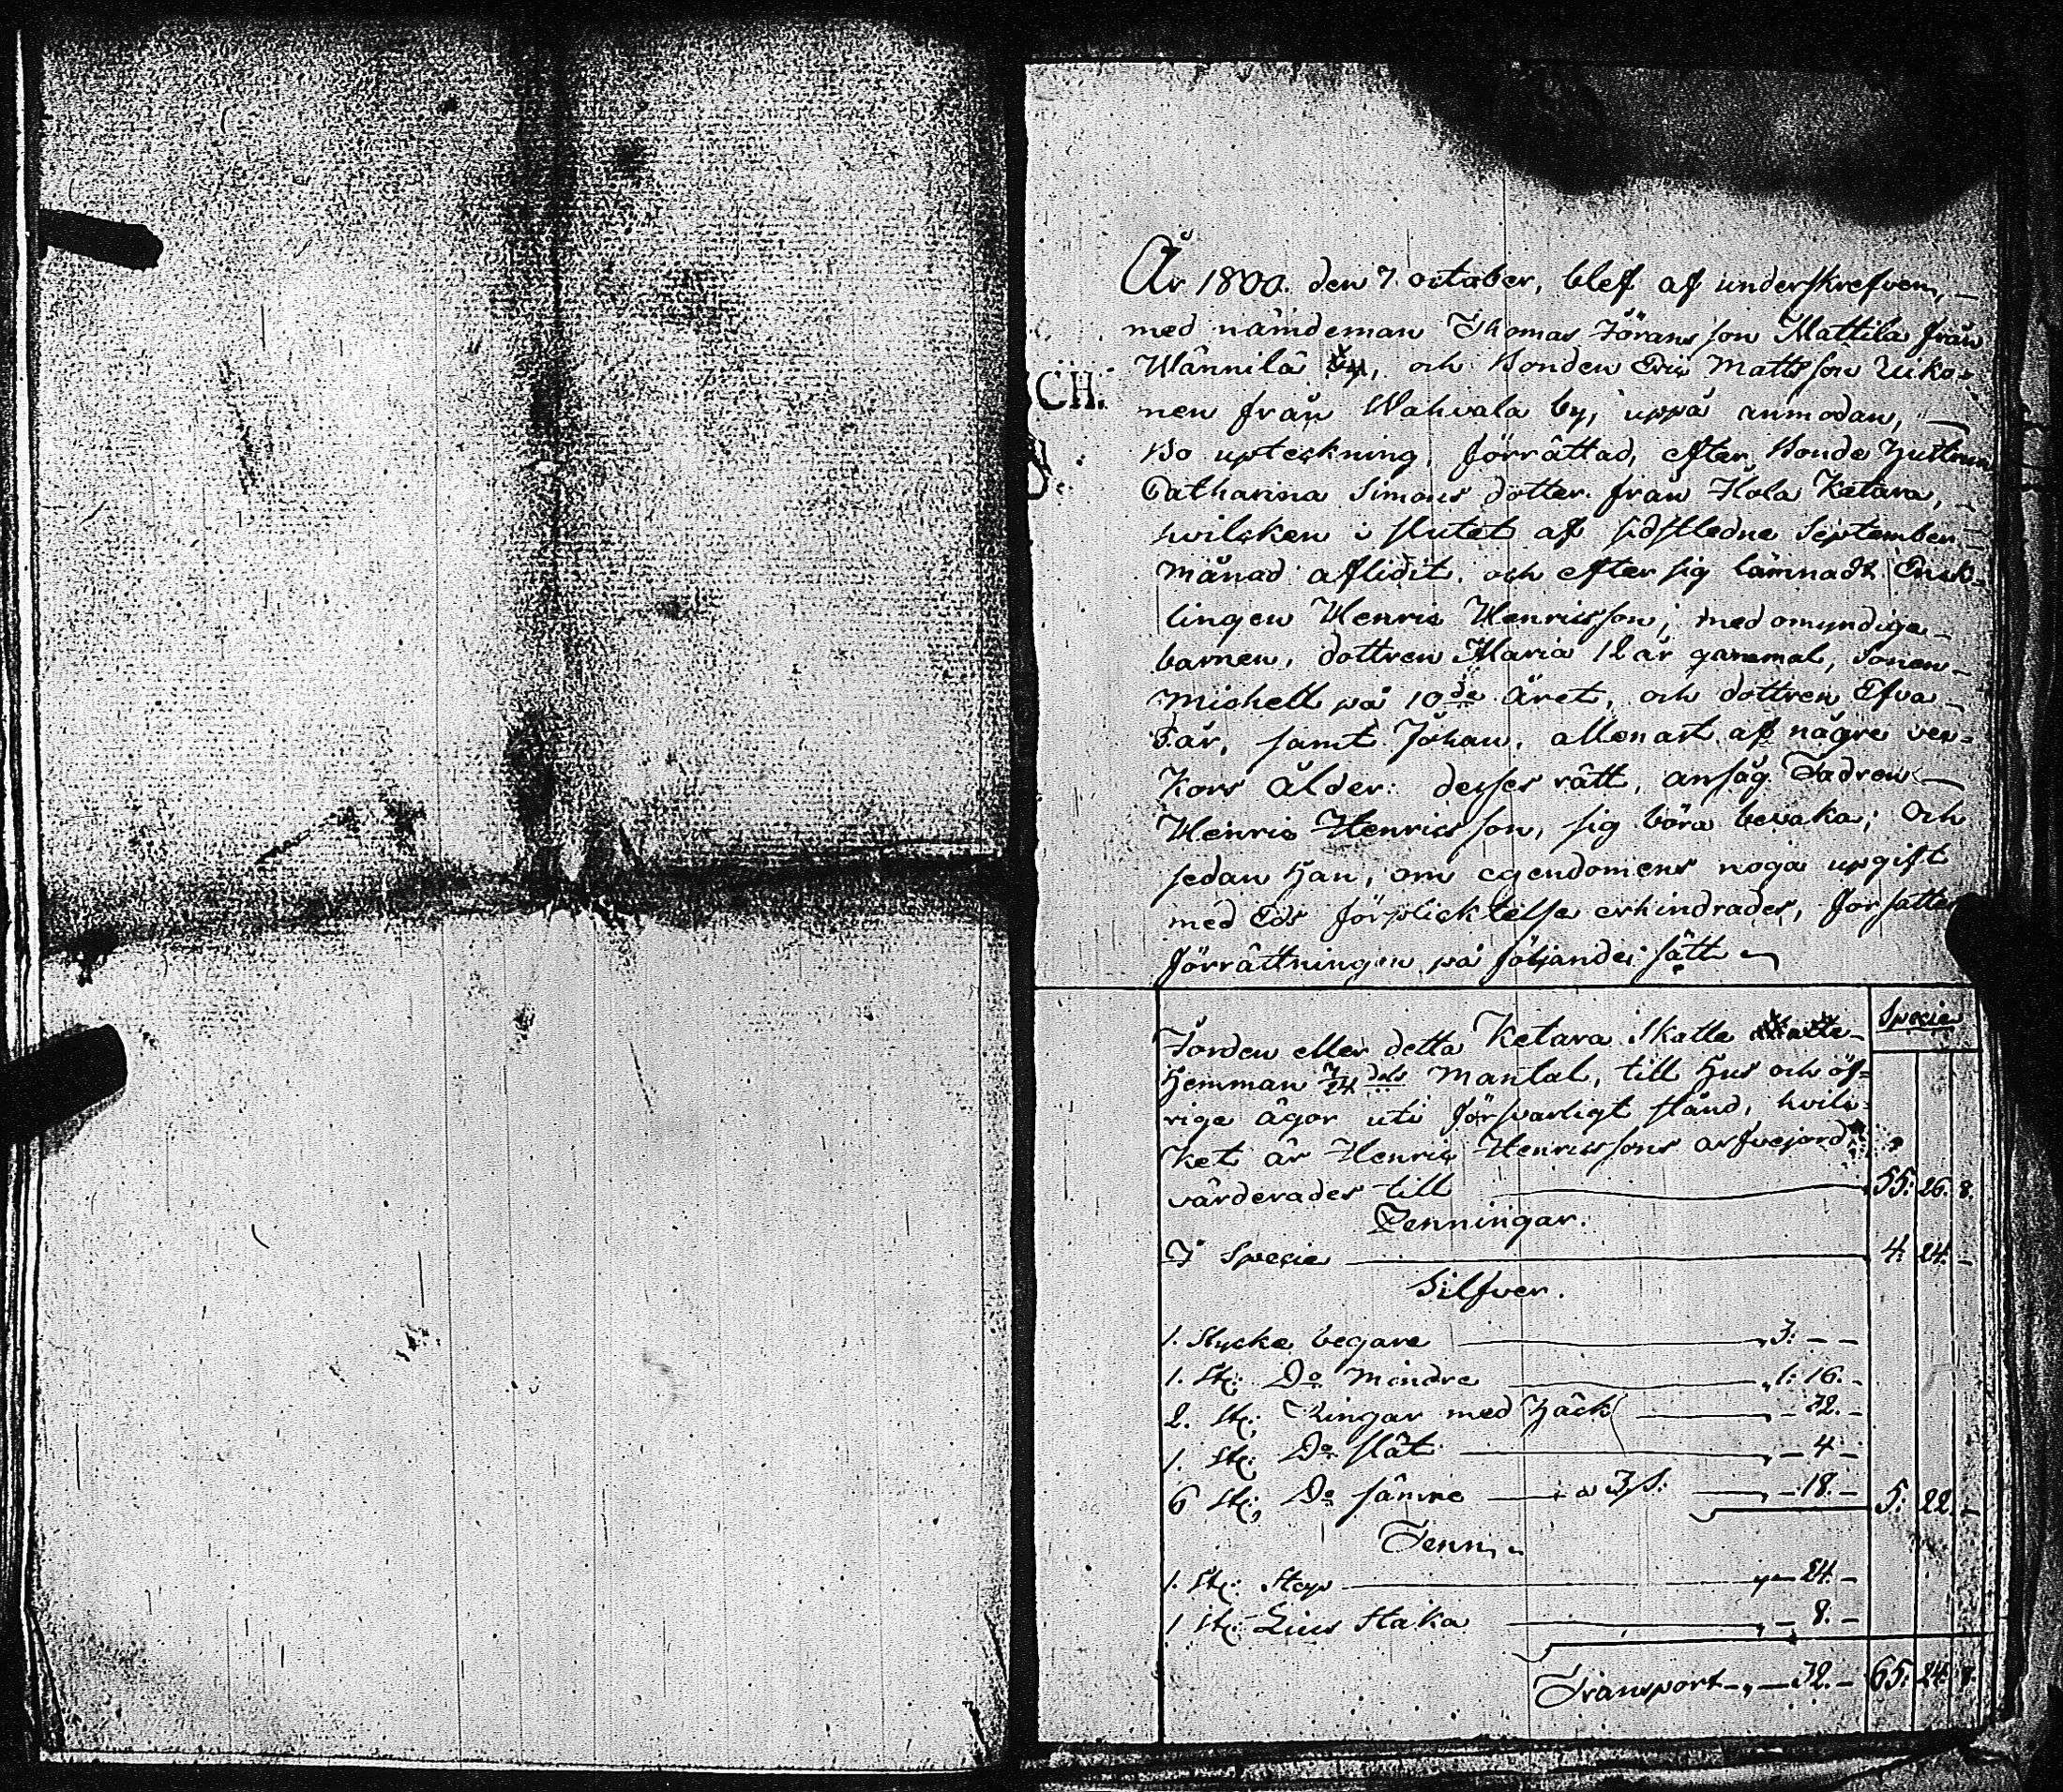 År 1800. den 7 october, blef af underskrefven,
med nämdeman Thomas Jöransson Mattila från
Wännilä by, och Bonden Eric Mattsson
nen från Wahvala by, uppå anmodan,
CH.
Bo upteckning, förrättad, efter Bonde hustrun
Catharina Simons dotter från Kola Ketara,
hvilcken i slutet af sidstledne September
månad aflidit, och efter sig lämnadt Enck-
lingen Henric Henricsson, med omyndiga
barnen, dottren Maria 12 år gammal, Sonen
Michell på 10de Året, och dottren Efva
år, samt Johan, allenast af någre vec-
kors ålder: desses rätt, ansåg Fadren
Henric Henricsson, sig böra bevaka; och
sedan han, om egendomens noga upgift
med Eds förplicktelse erhindrades, författes
förrättningen på följande sätt
Specie
Jorden eller detta Ketara Skatte
hemman 7/24 dels Mantal, till hus och öf-
rige ägor uti försvarligt stånd, hvil-
ket är Henric Henricssons arfvejord
värderades till 55: 26. 8.
Penningar.
I Specie 4: 24. -
Silfver.
1. Stycke begare 3: - -
1. St: Do mindre 1: 16. -
2. St: Ringar med häck - 32. -
1. St: Do slät - 4
6 St: Do sämre a 3 s: - 18. - 5: 22. -
Tenn
1. St: Stop - 24. -
1 St: Lius Staka - 8. -
Transport - 32. - 65: 24. 8.